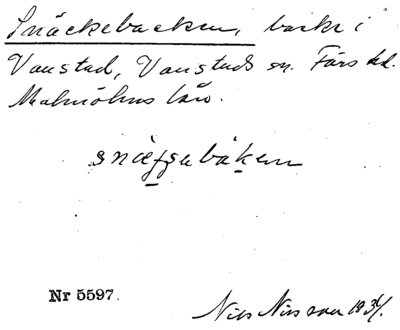 Snäckebacken, backe i
Vanstad, Vanstads sn. Färs hd.
Malmöhus län.
Nr 5597.
Nils Nilsson 1931.